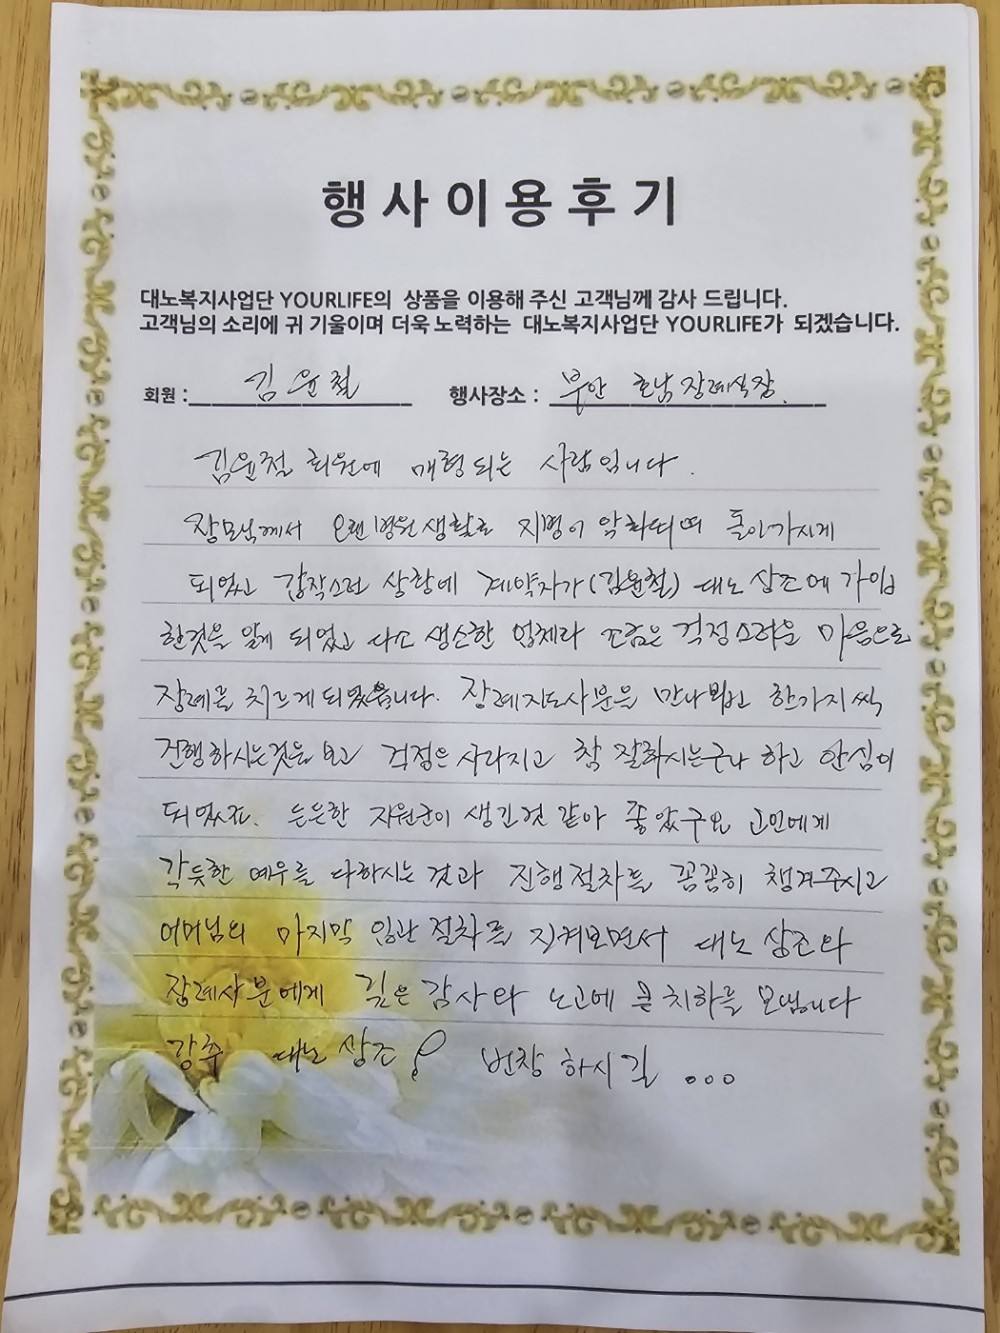 행사이용후기
대노복지사업단 YOURLIFE의 상품을 이용해 주신 고객님께 감사 드립니다.
고객님의 소리에 귀 기울이며 더욱 노력하는 대노복지사업단 YOURLIFE가 되겠습니다.
회원 : 김윤철 행사장소 : 부안 호남장례식장.
김윤철 회원에 매형되는 사람입니다.
장모님께서 오랜병원생활로 지병이 악화되며 돌아가시게
되었고 갑작스런 상황에 계약자가(김윤철) 대노상조에 가입
한것을 알게 되었고 다소 생소한 업체라 조금은 걱정스러운 마음으로
장례를 치르게되었습니다. 장례지도사분을 만나뵙고 한가지씩
진행하시는것을 보고 걱정은 사라지고 참 잘하시는구나 하고 안심이
되었죠. 든든한 지원군이 생긴것 같아 좋았구요 고인에게
각듯한 예우를 다하시는 것과 진행절차를 꼼꼼히 챙겨주시고
어머님의 마지막 입관 절차를 지켜보면서 대노 상조와
장례사분에게 깊은 감사와 노고에 큰 치하를 보냅니다
강추 대노 상조! 번창 하시길 ...